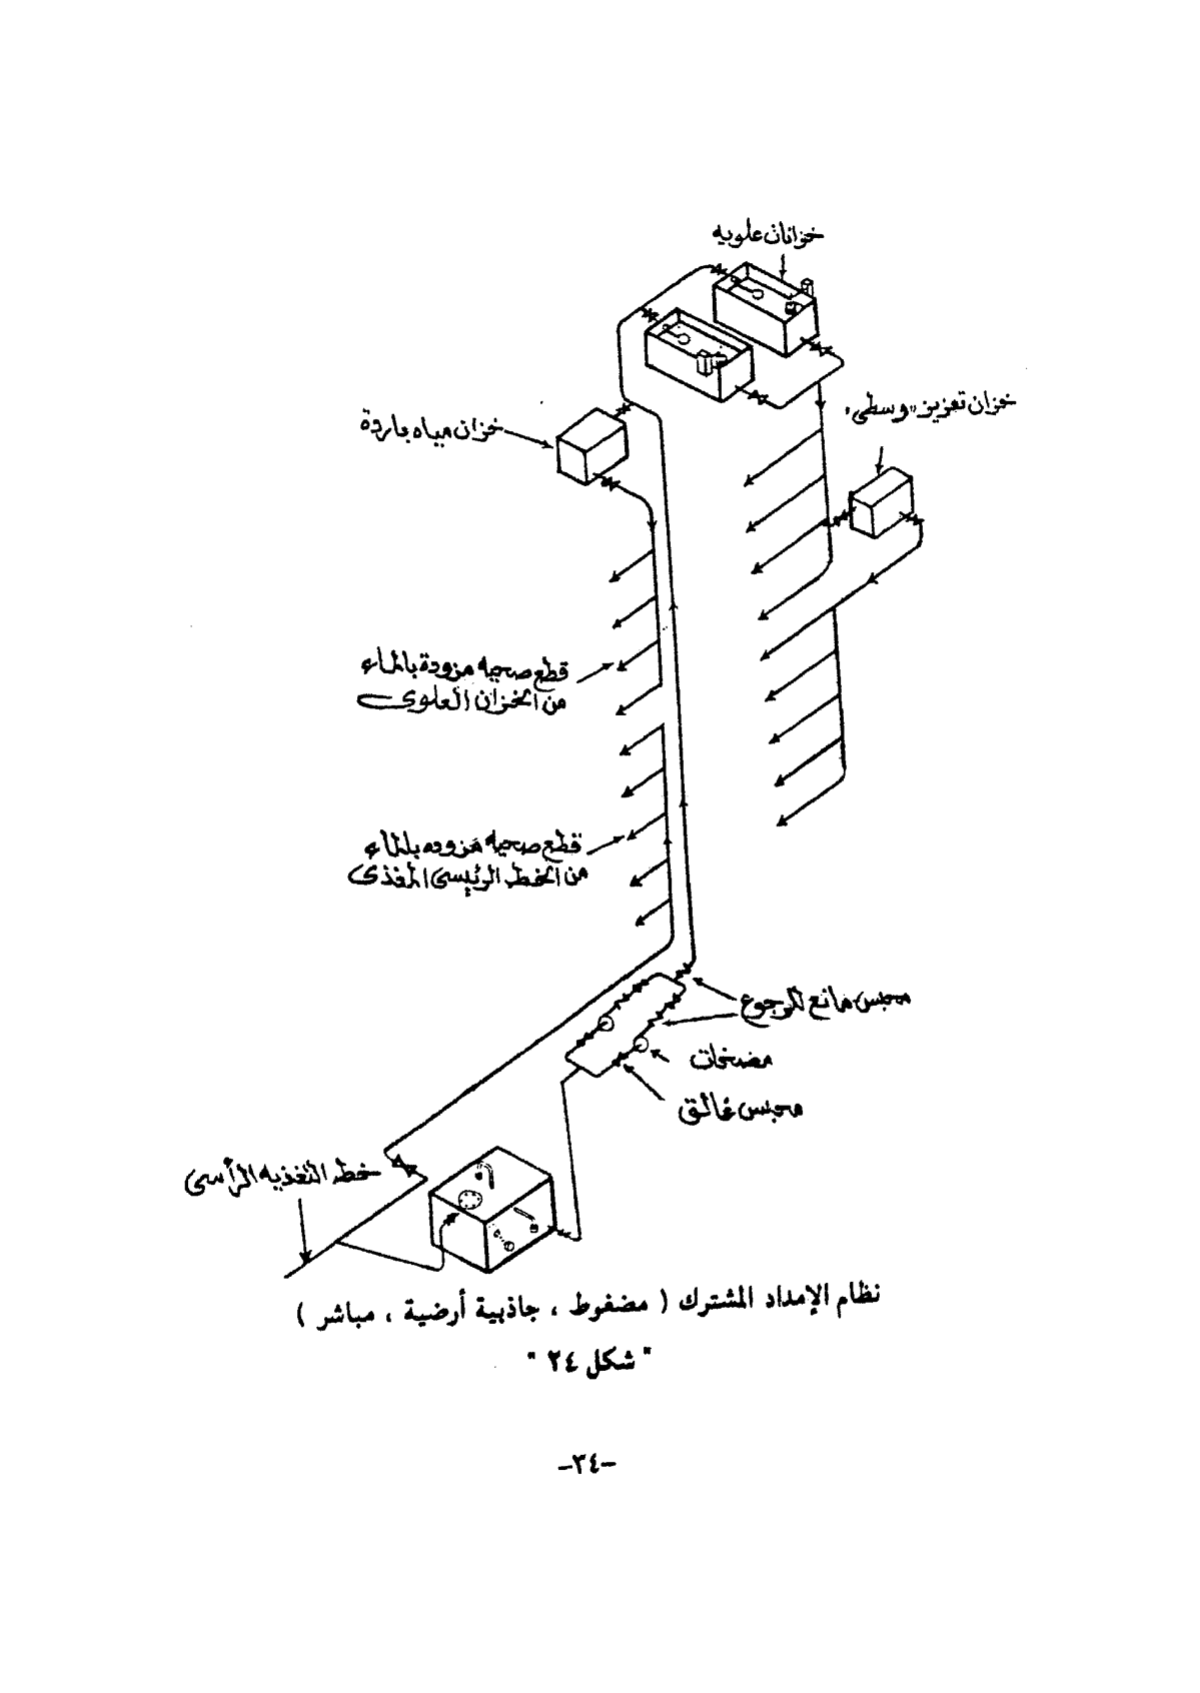 خزانات علويه
خزان تعزيز "وسطى"
خزان مياه باردة
قطع صحيه مزودة بالماء
من الخزان العلوى
قطع صحيه مزوده بالماء
من الخط الرئيسى المغذى
محبس مانع للرجوع
مضخات
محبس غالق
خط التغذيه الرأسى
نظام الإمداد المشترك ( مضغوط ، جاذبية أرضية ، مباشر )
" شكل ٢٤ "
–٣٤–